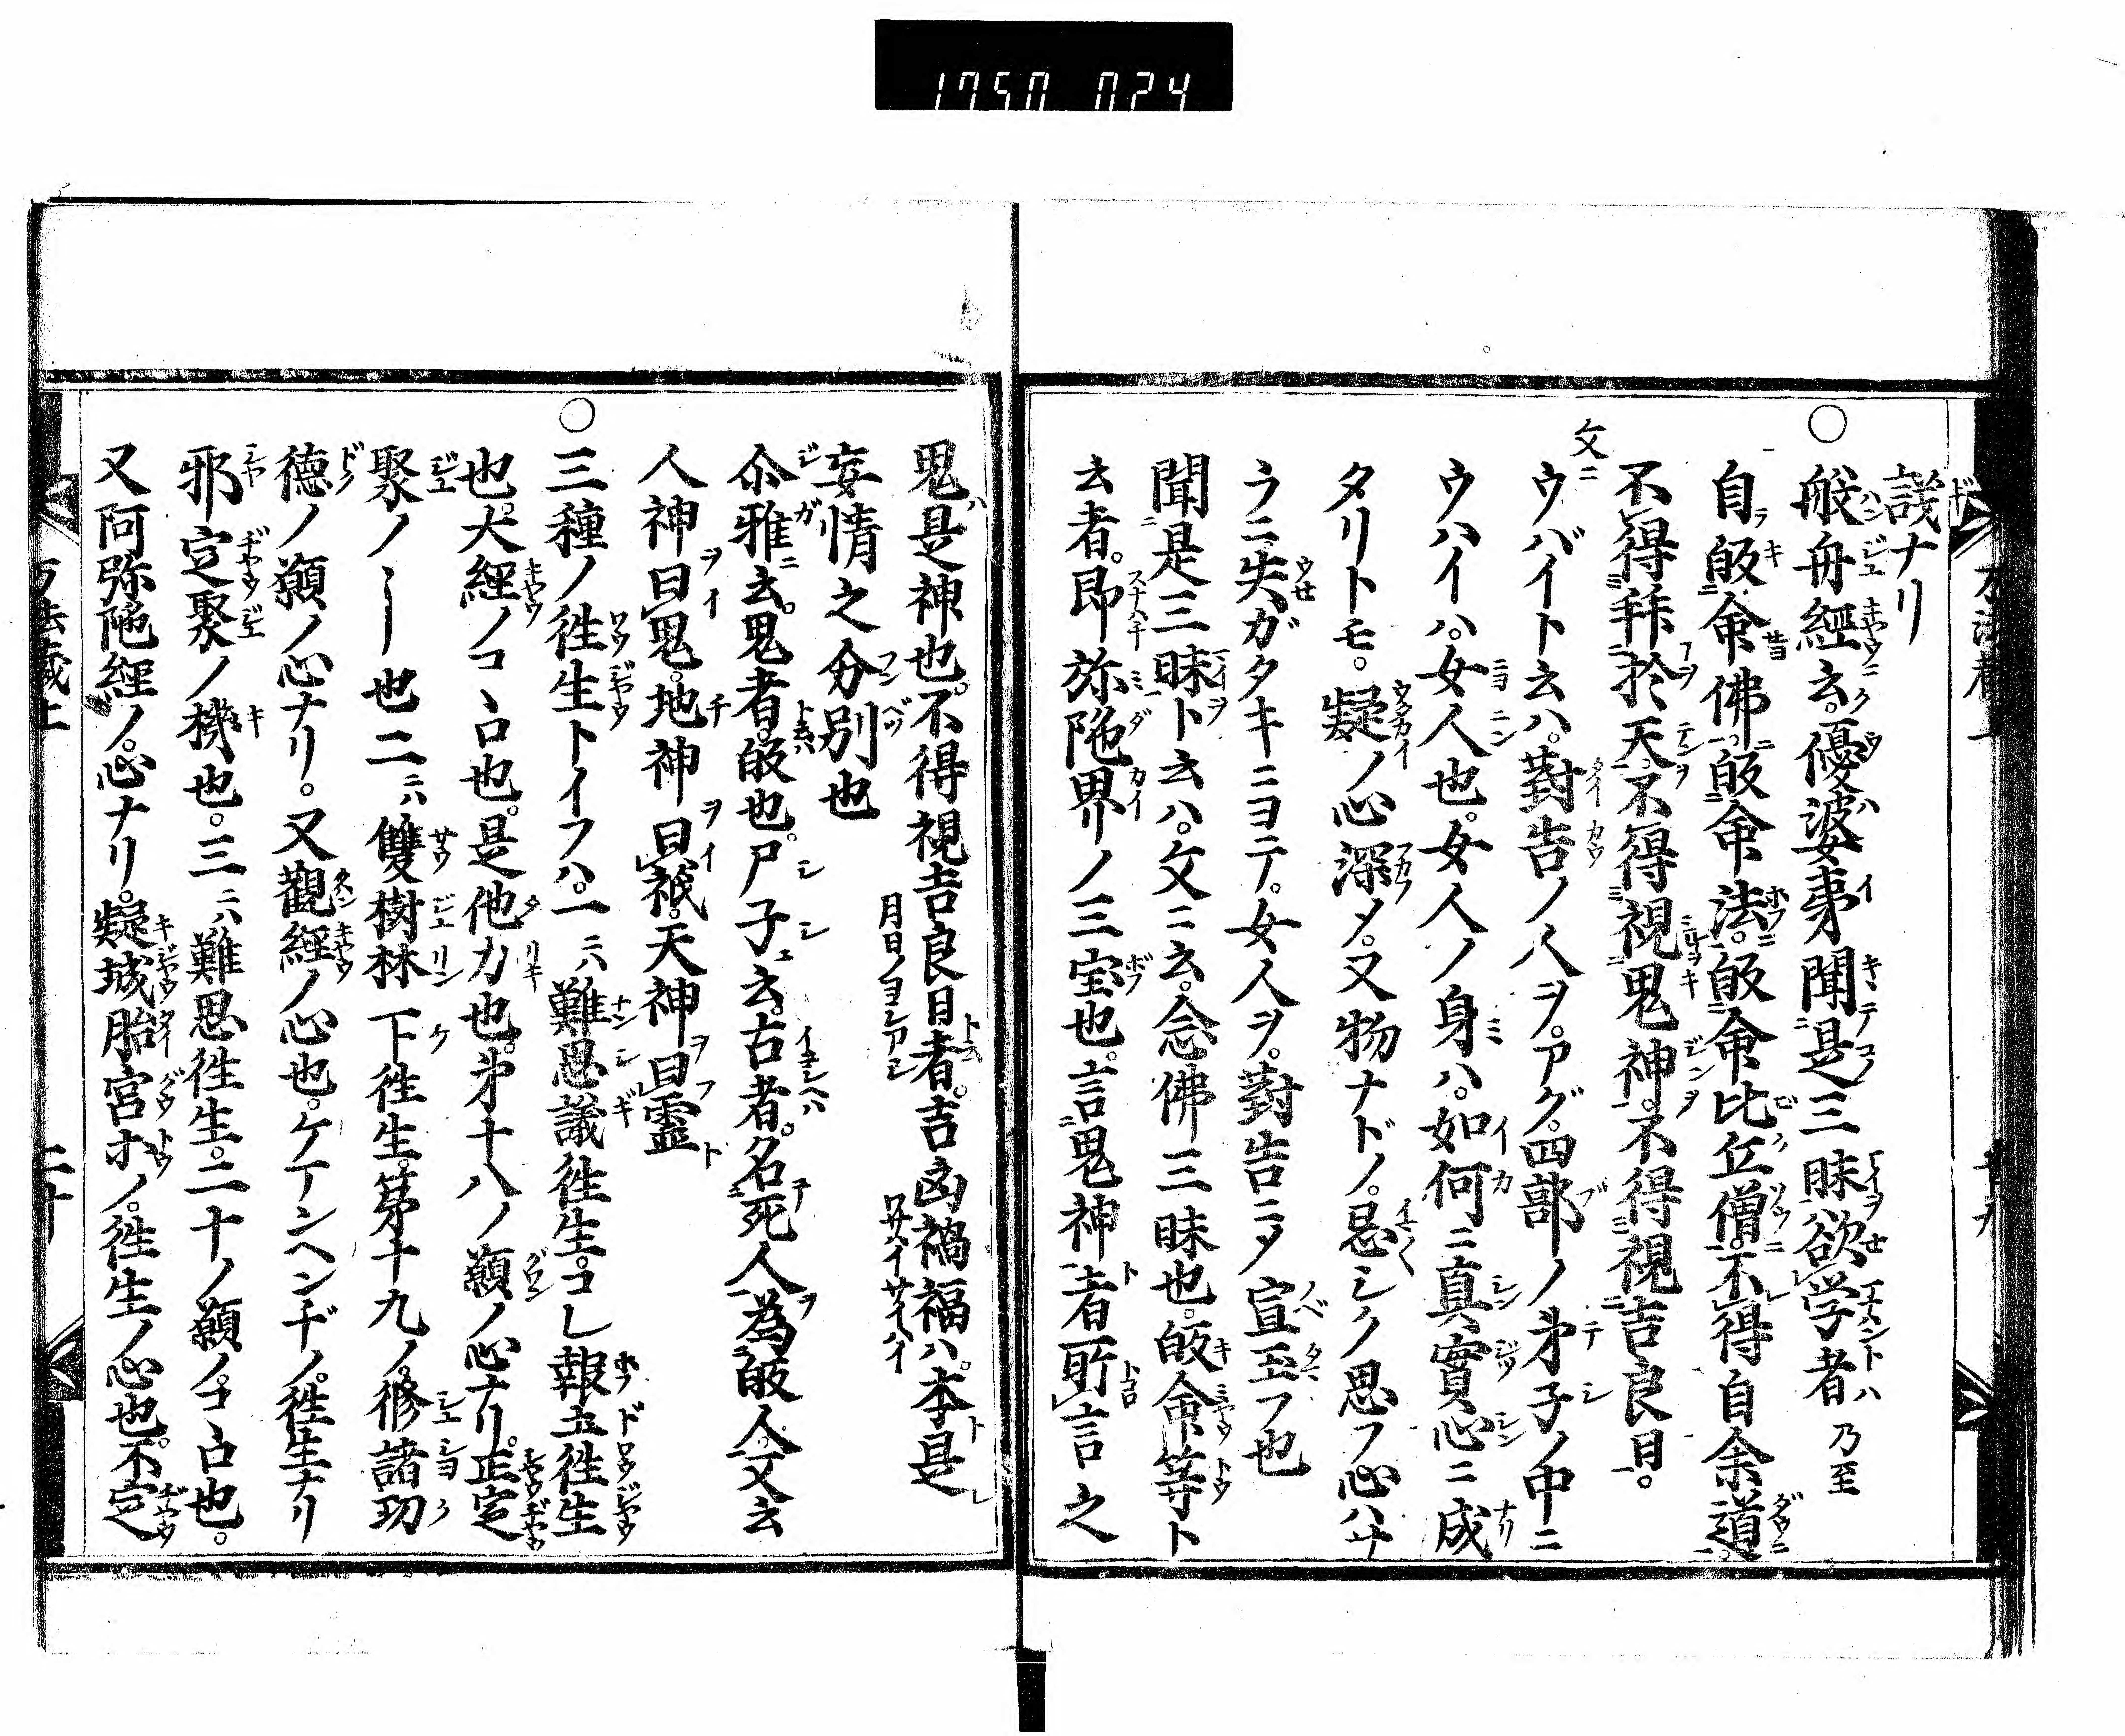 議ナリ
○般舟經云。優婆夷聞是三昧欲学者 乃至
自皈命佛。皈命法。皈命比丘僧。不得自余道。
不得拜於天。不得視鬼神。不得視吉良日。
文ニ
ウバイト云ハ。對告ノ人ヲ。アグ。四部ノ弟子ノ中ニ
ウハイハ。女人也。女人ノ身ハ。如何ニ真實心ニ成
タリトモ。疑ノ心深メ。又物ナドノ。忌シク思フ心ハナ
ラニ。失ガタキニヨテ。女人ヲ。對告ニメ宣玉フ也
聞是三昧ト云ハ。文ニ云。念佛三昧也。皈命等ト
云者。即弥陁界ノ三宝也。言鬼神者所言之
鬼是神也。不得視吉良日者。吉凶禍福ハ。本是
月日ノヨシアシ ワサハイサイハイ
妄情之分別也
尒雅云。鬼者。皈也。尸子云。古者。名死人為皈人文云
人神曰鬼。地神曰祇。天神曰霊
○三種ノ往生トイフハ。一ニハ難思議往生。コレ報土往生
也。大經ノココロ也。是他力也。弟十八ノ願ノ心ナリ。正定
聚ノ――也二ニハ雙樹林下往生。第十九ノ。修諸功
德ノ願ノ心ナリ。又觀經ノ心也。ケテンヘンヂノ。往生ナリ
邪定聚ノ機也。三ニハ難思往生。二十ノ願ノ。ココロ也。
又阿弥陁經ノ。心ナリ。疑城胎宮ホノ。往生ノ心也。不定
二十
1750 024